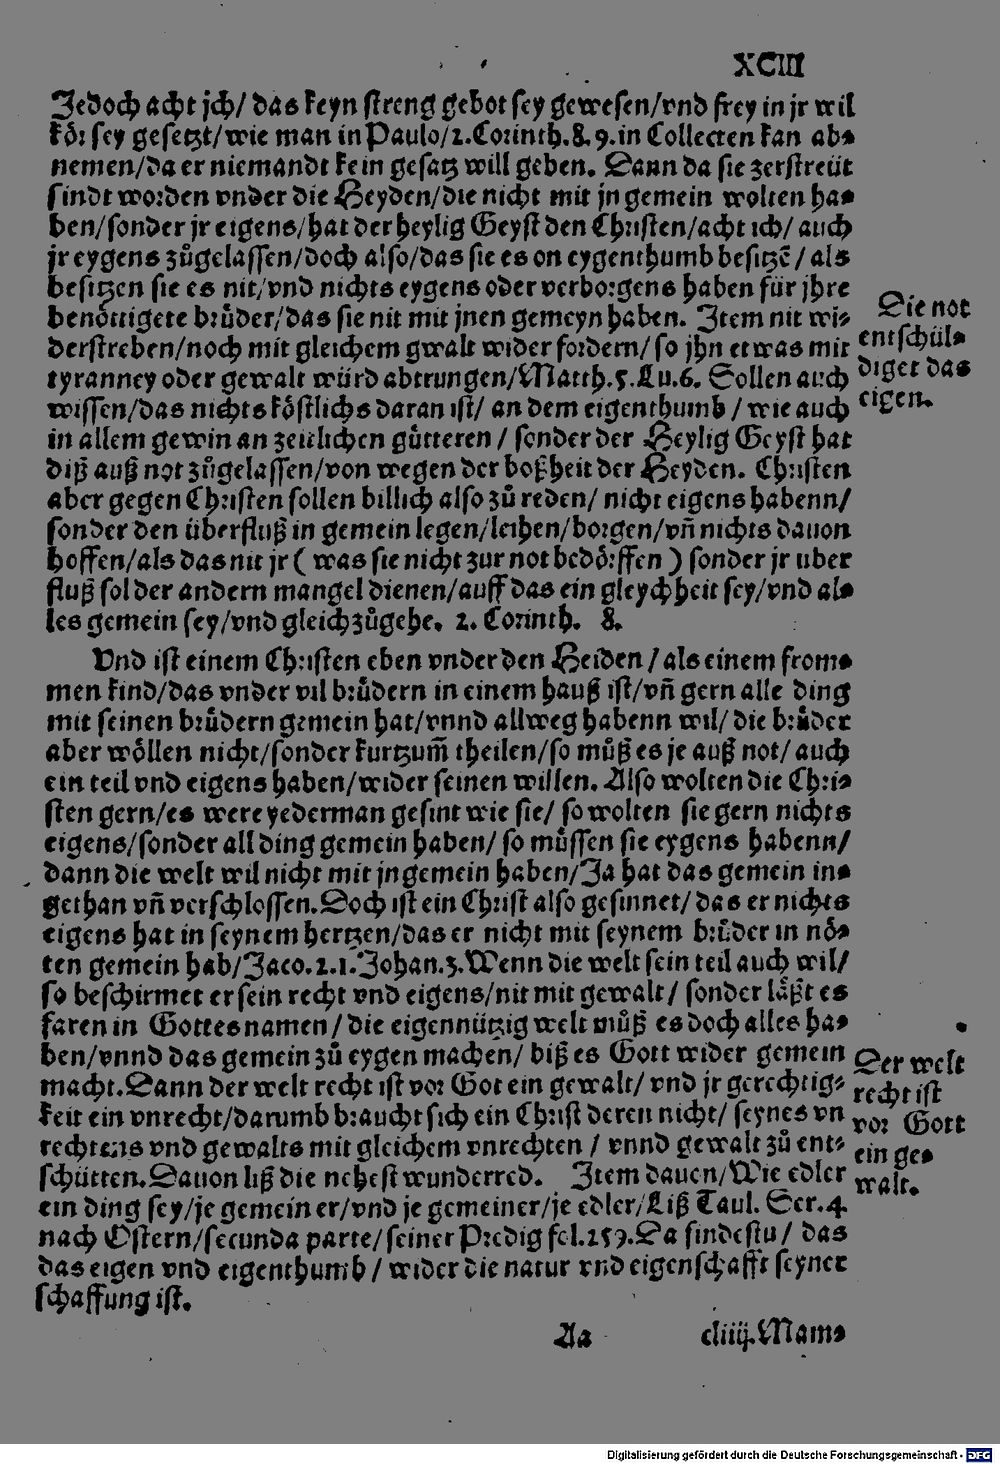 XCIII
Jedoch acht jch/ das keyn streng gebot sey gewesen/vnd frey in jr wil
kör sey gesetzt/wie man in Paulo/2.Corinth.8.9.in Collecten kan ab⸗
nemen/da er niemandt kein gesatz will geben. Dann da sie zerstreüt
sindt worden vnder die Heyden/die nicht mit jn gemein wolten ha⸗
ben/sonder jr eigens/hat der heylig Geyst den Christen/acht ich/ auch
jr eygens zůgelassen/doch also/das sie es on eygenthumb besitzẽ/ als
besitzen sie es nit/vnd nichts eygens oder verborgens haben für jhre
benöttigete brüder/das sie nit mit jnen gemeyn haben. Item nit wi⸗
derstreben/noch mit gleichem gwalt wider fordern/ so jhn etwas mit
tyranney oder gewalt würd abtrungen/Matth.5.Lu.6. Sollen auch
wissen/das nichts köstlichs daran ist/ an dem eigenthumb / wie auch
in allem gewin an zeitlichen gütteren / sonder der Heylig Geyst hat
diß auß not zůgelassen/von wegen der boßheit der Heyden. Christen
aber gegen Christen sollen billich also zů reden/ nicht eigens habenn/
sonder den überfluß in gemein legen/leihen/borgen/vñ nichts dauon
hoffen/als das nit jr ( was sie nicht zur not bedörffen ) sonder jr uber
fluß sol der andern mangel dienen/auff das ein gleychheit sey/vnd al⸗
les gemein sey/vnd gleich zůgehe. 2. Corinth. 8.
Vnd ist einem Christen eben vnder den Heiden / als einem from⸗
men kind/das vnder vil brüdern in einem hauß ist/vñ gern alle ding
mit seinen brüdern gemein hat/vnnd allweg habenn wil/ die brüder
aber wöllen nicht/sonder kurtzum̃ theilen/so můß es je auß not/ auch
ein teil vnd eigens haben/wider seinen willen. Also wolten die Chri⸗
sten gern/es were yederman gesint wie sie/ so wolten sie gern nichts
eigens/sonder all ding gemein haben/ so müssen sie eygens habenn/
dann die welt wil nicht mit jn gemein haben/Ja hat das gemein in⸗
gethan vñ verschlossen.Doch ist ein Christ also gesinnet/ das er nichts
eigens hat in seynem hertzen/das er nicht mit seynem brůder in nö⸗
ten gemein hab/Jaco.2.1.Johan.3.Wenn die welt sein teil auch wil/
so beschirmet er sein recht vnd eigens/nit mit gewalt/ sonder läßt es
faren in Gottes namen / die eigennützig welt můß es doch alles ha⸗
ben/vnnd das gemein zů eygen machen/ biß es Gott wider gemein
macht.Dann der welt recht ist vor Got ein gewalt/ vnd jr gerechtig⸗
keit ein vnrecht/darumb braucht sich ein Christ deren nicht/ seynes vn
rechtens vnd gewalts mit gleichem vnrechten / vnnd gewalt zů ent⸗
schütten.Dauon liß die nehest wunderred. Item dauen/Wie edler
ein ding sey/je gemein er/vnd je gemeiner/je edler/Liß Taul. Ser.4.
nach Ostern/secunda parte/seiner Predig fol.159.Da findestu / das
das eigen vnd eigenthumb / wider die natur vnd eigenschafft seyner
schaffung ist.
Aa
ciiij.Mam⸗
Die not
entschül⸗
diget das
eigen.
Der welt
recht ist
vor Gott
ein ge⸗
walt.
Digitalisierung gefördert durch die Deutsche Forschungsgemeinschaft - DFG